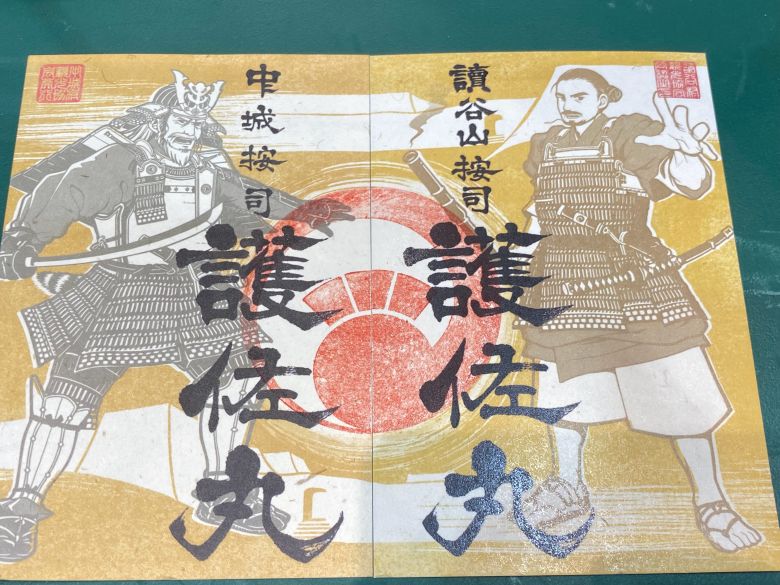 讀谷山按司
護佐丸
中城按司
護佐丸